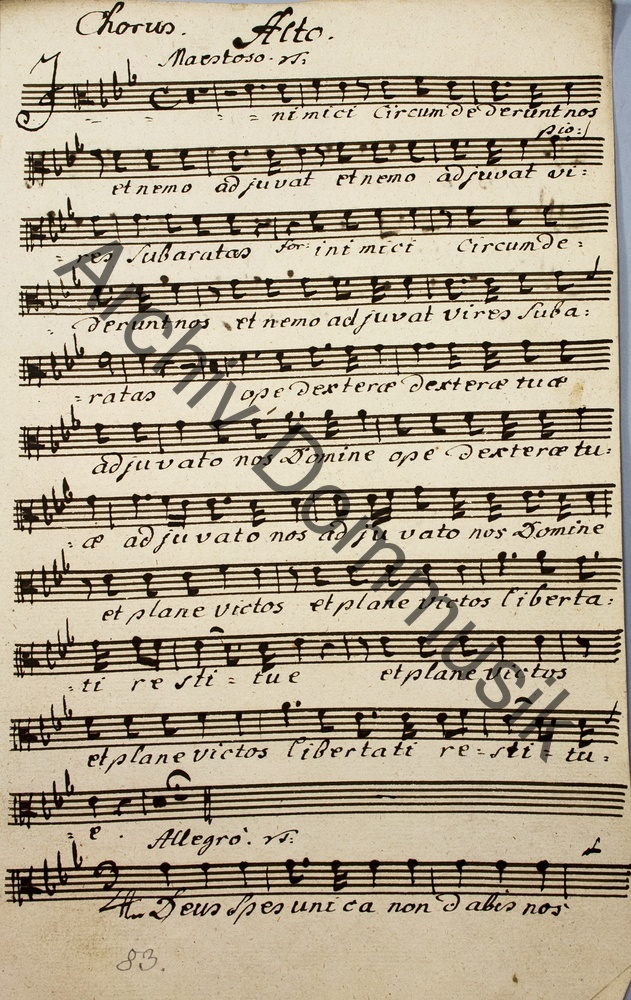 Chorus. Alto.
Maestoso.
= = = nimici Circumdederunt nos
pio:
et nemo adjuvat et nemo adjuvat vi=
= res Subaratas for: inimici Circumde=
= derunt nos et nemo adjuvat vires Suba=
= ratas ope dexteræ dexteræ tuæ
adjuvato nos Domine ope dexteræ tu=
= æ adjuvato nos adjuvato nos Domine
et plane victos et plane victos liberta=
= ti resti= tue et plane victos
et plane victos libertati re=sti=tu=
= e.
Allegro.
Deus Spes unica non dabis nos
83.
Archiv Dommusik